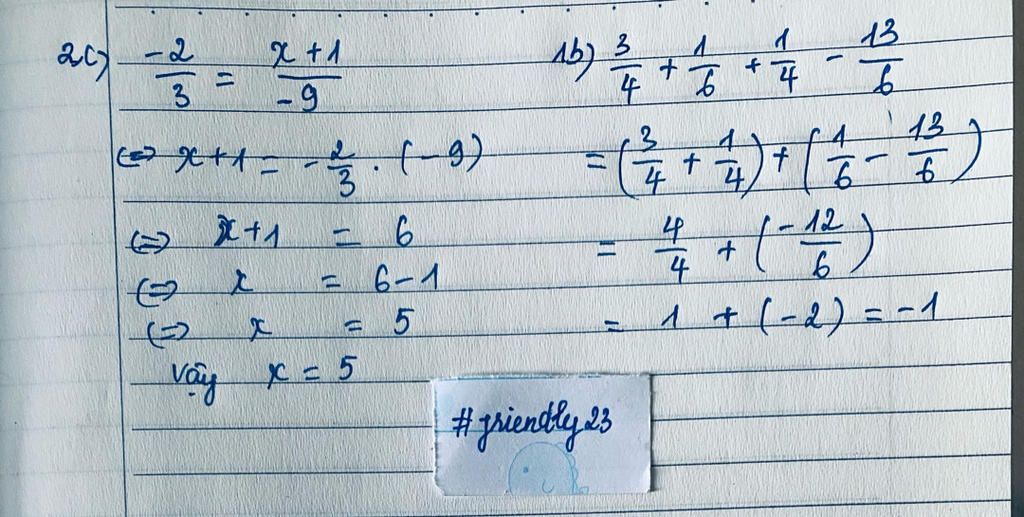 2c) -2/3 = x+1/-9
⇔ x+1 = -2/3 . (-9)
⇔ x+1 = 6
⇔ x = 6-1
⇔ x = 5
Vậy x = 5
1b) 3/4 + 1/6 + 1/4 - 13/6
= (3/4 + 1/4) + (1/6 - 13/6)
= 4/4 + (-12/6)
= 1 + (-2) = -1
#friendly23